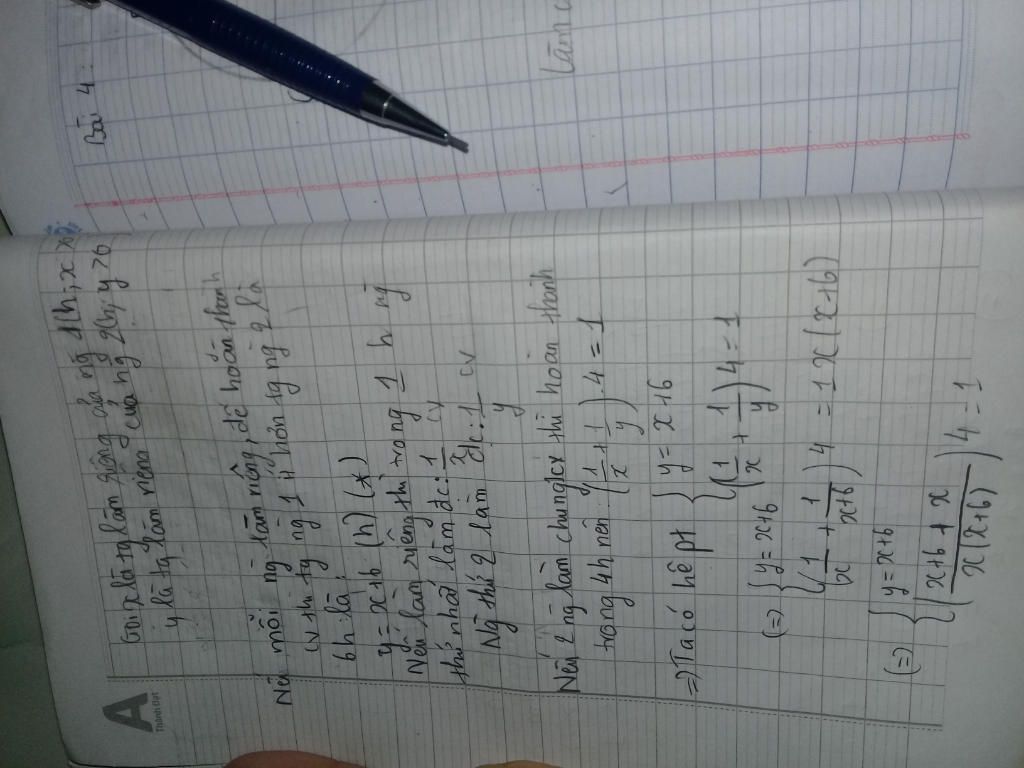 Bài 4:
Làm c
A
Gọi x là tg làm riêng của ng 1(h; x >
y là tg làm riêng của ng 2(h; y>6
Nếu mỗi ng làm riêng, để hoàn thành
cv thì tg ng 1 ít hơn tg ng 2 là
6h là:
y = x+6 (h) (*)
Nếu làm riêng thì trong 1 h ng
thứ nhất làm đc: 1/x cv
Ng thứ 2 làm đc: 1/y cv
Nếu 2 ng làm chung cv thì hoàn thành
trong 4h nên: (1/x + 1/y).4 = 1
=> Ta có hệ pt { y = x+6
{ (1/x + 1/y) 4 = 1
(=) { y = x+6
{ (1/x + 1/(x+6)) 4 = 1 x(x+6)
(=) { y = x+6
{ ((x+6+x)/(x(x+6))) 4 = 1